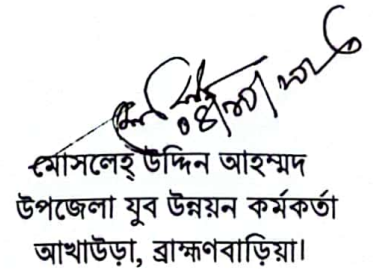 মোসলেহ্ উদ্দিন আহম্মদ
উপজেলা যুব উন্নয়ন কর্মকর্তা
আখাউড়া, ব্রাহ্মণবাড়িয়া।